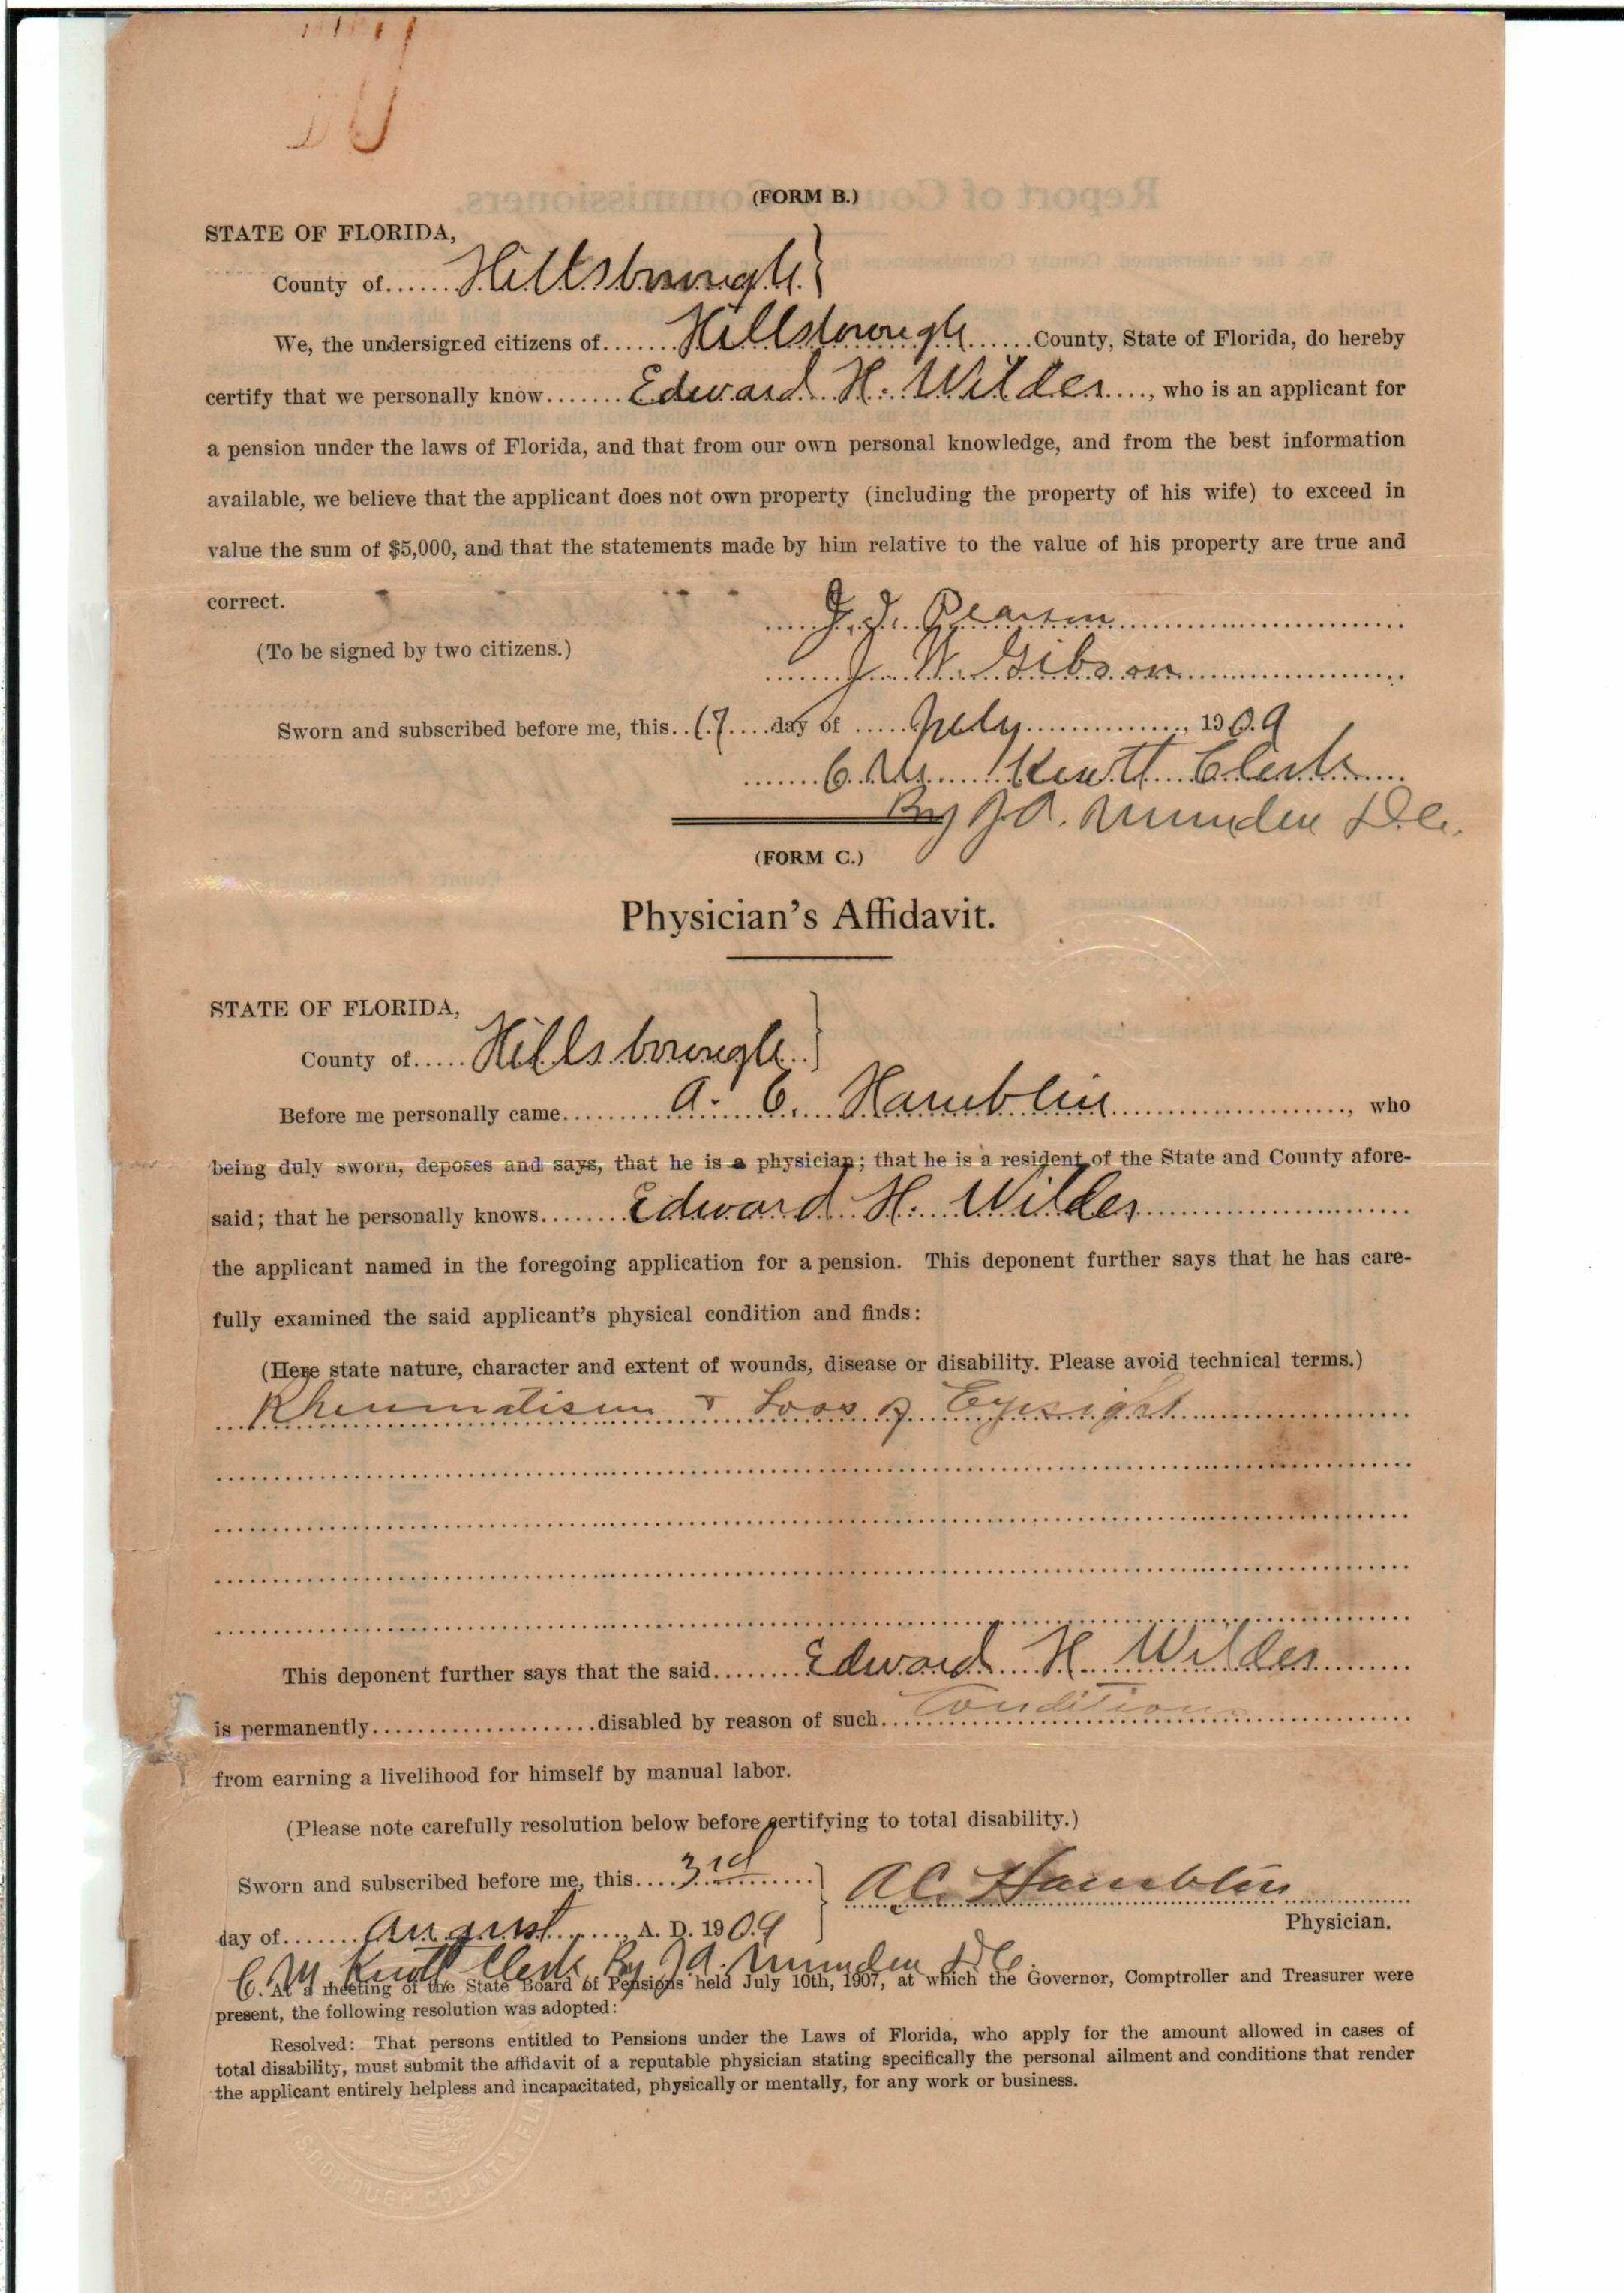 (FORM B.)
STATE OF FLORIDA,
County of....... Hillsborough }
We, the undersigned citizens of....... Hillsborough ......County, State of Florida, do hereby
certify that we personally know....... Edward H. Wilder ...., who is an applicant for
a pension under the laws of Florida, and that from our own personal knowledge, and from the best information
available, we believe that the applicant does not own property (including the property of his wife) to exceed in
value the sum of $5,000, and that the statements made by him relative to the value of his property are true and
correct.
J. J. Pearson
(To be signed by two citizens.)
J. W. Gibson
Sworn and subscribed before me, this.. 17 ....day of ..... July .............., 1909
C. M. Knott Clerk
By J A. Munden D.C.
(FORM C.)
Physician's Affidavit.
STATE OF FLORIDA,
County of..... Hillsborough }
Before me personally came......... A. C. Hamblin ......................, who
being duly sworn, deposes and says, that he is a physician; that he is a resident of the State and County afore-
said; that he personally knows....... Edward H. Wilder
the applicant named in the foregoing application for a pension. This deponent further says that he has care-
fully examined the said applicant's physical condition and finds:
(Here state nature, character and extent of wounds, disease or disability. Please avoid technical terms.)
Rheumatism & Loss of Eyesight
This deponent further says that the said....... Edward H. Wilder
is permanently....................disabled by reason of such... Condition
from earning a livelihood for himself by manual labor.
(Please note carefully resolution below before certifying to total disability.)
Sworn and subscribed before me, this.... 3rd ........ } A C. Hamblin
Physician.
day of....... August ......., A. D. 1909
C. M Knott Clerk By J A. Munden D C.
At a meeting of the State Board of Pensions held July 10th, 1907, at which the Governor, Comptroller and Treasurer were
present, the following resolution was adopted:
Resolved: That persons entitled to Pensions under the Laws of Florida, who apply for the amount allowed in cases of
total disability, must submit the affidavit of a reputable physician stating specifically the personal ailment and conditions that render
the applicant entirely helpless and incapacitated, physically or mentally, for any work or business.